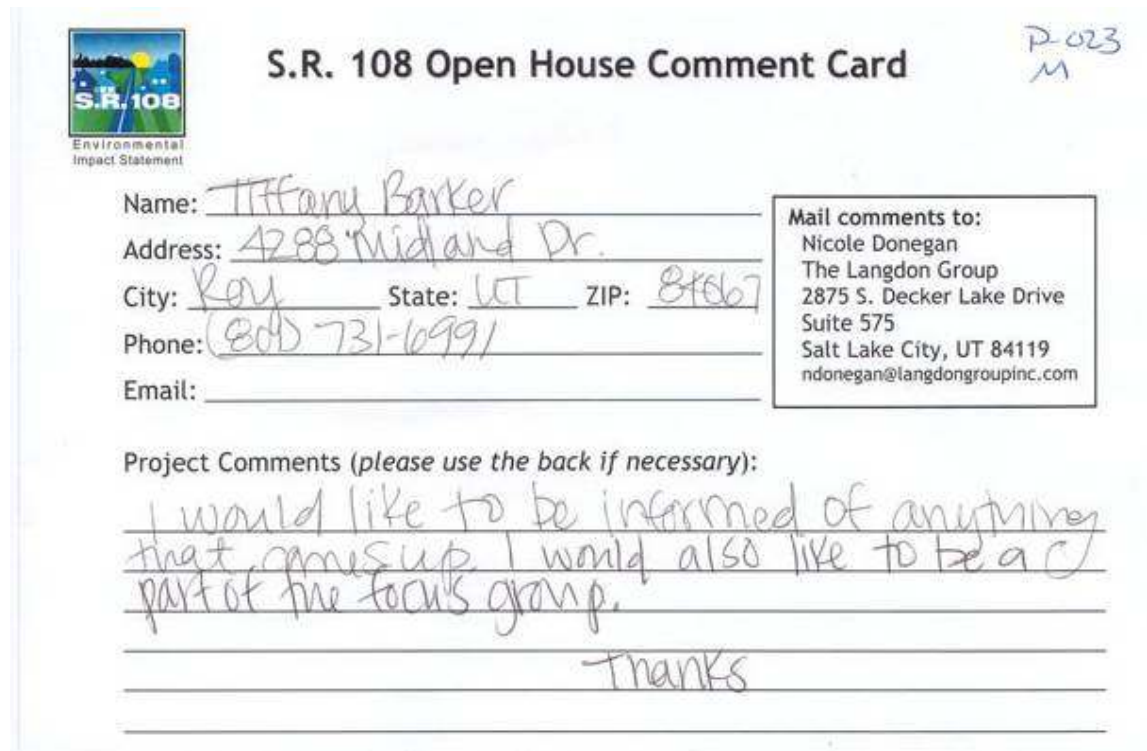 P-023
M
S.R. 108 Open House Comment Card
S.R. 108
Environmental
Impact Statement
Name: Tiffany Barker
Address: 4288 Midland Dr.
City: Roy State: UT ZIP: 84067
Phone: (801) 731-6991
Email:
Mail comments to:
Nicole Donegan
The Langdon Group
2875 S. Decker Lake Drive
Suite 575
Salt Lake City, UT 84119
ndonegan@langdongroupinc.com
Project Comments (please use the back if necessary):
I would like to be informed of anything
that comes up. I would also like to be a
part of the focus group.
Thanks